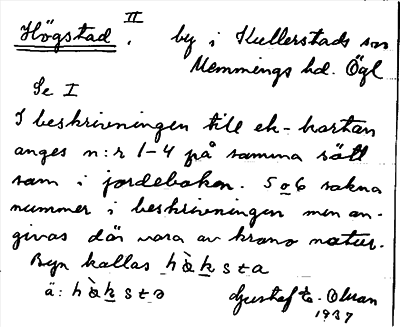 Högstad II. by i Kullerstads sn
Memmings hd. Ögl
Se I
I beskrivningen till ek-kartan
anges n:r 1-4 på samma sätt
som i jordeboken. 5 o 6 sakna
nummer i beskrivningen men an-
givas där vara av krono natur.
Byn kallas hὰksta
ä: hὰksta
Gustaf
1937